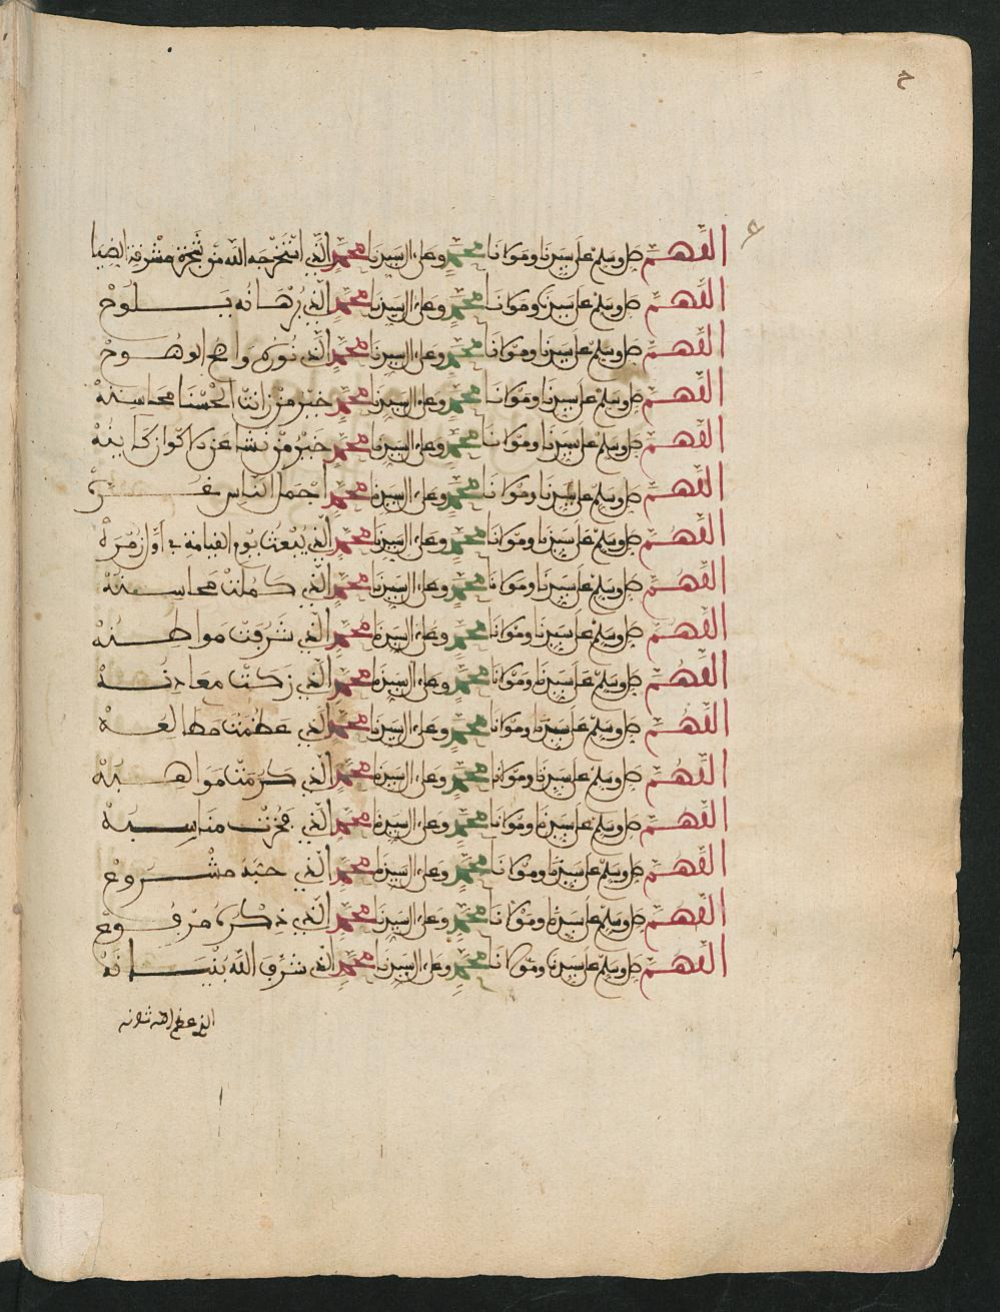 اللهم صل وسلم على سيدنا ومولانا محمد وعلى ال سيدنا محمد الذي انتخبه الله من مشرفة الضيا
اللهم صل وسلم على سيدنا ومولانا محمد وعلى ال سيدنا محمد الذي برهانه يلوح
اللهم صل وسلم على سيدنا ومولانا محمد وعلى ال سيدنا محمد الذي نوره واضح الوضوح
اللهم صل وسلم على سيدنا ومولانا محمد وعلى ال سيدنا محمد خير من زانت الحسنا محاسنه
اللهم صل وسلم على سيدنا ومولانا محمد وعلى ال سيدنا محمد خير من نشا عن
اللهم صل وسلم على سيدنا ومولانا محمد وعلى ال سيدنا محمد اجمل الناس غرة
اللهم صل وسلم على سيدنا ومولانا محمد وعلى ال سيدنا محمد الذي يبعث يوم القيامة في اول زمرة
اللهم صل وسلم على سيدنا ومولانا محمد وعلى ال سيدنا محمد الذي كملت محاسنه
اللهم صل وسلم على سيدنا ومولانا محمد وعلى ال سيدنا محمد الذي شرفت مواطنه
اللهم صل وسلم على سيدنا ومولانا محمد وعلى ال سيدنا محمد الذي زكت معادنه
اللهم صل وسلم على سيدنا ومولانا محمد وعلى ال سيدنا محمد الذي عظمت مطالعه
اللهم صل وسلم على سيدنا ومولانا محمد وعلى ال سيدنا محمد الذي كرمت مواهبه
اللهم صل وسلم على سيدنا ومولانا محمد وعلى ال سيدنا محمد الذي فخرت مناسبه
اللهم صل وسلم على سيدنا ومولانا محمد وعلى ال سيدنا محمد الذي حبه مشروع
اللهم صل وسلم على سيدنا ومولانا محمد وعلى ال سيدنا محمد الذي ذكره مرفوع
اللهم صل وسلم على سيدنا ومولانا محمد وعلى ال سيدنا محمد الذي شرف الله بنيانه
الذي عظم الله شانه